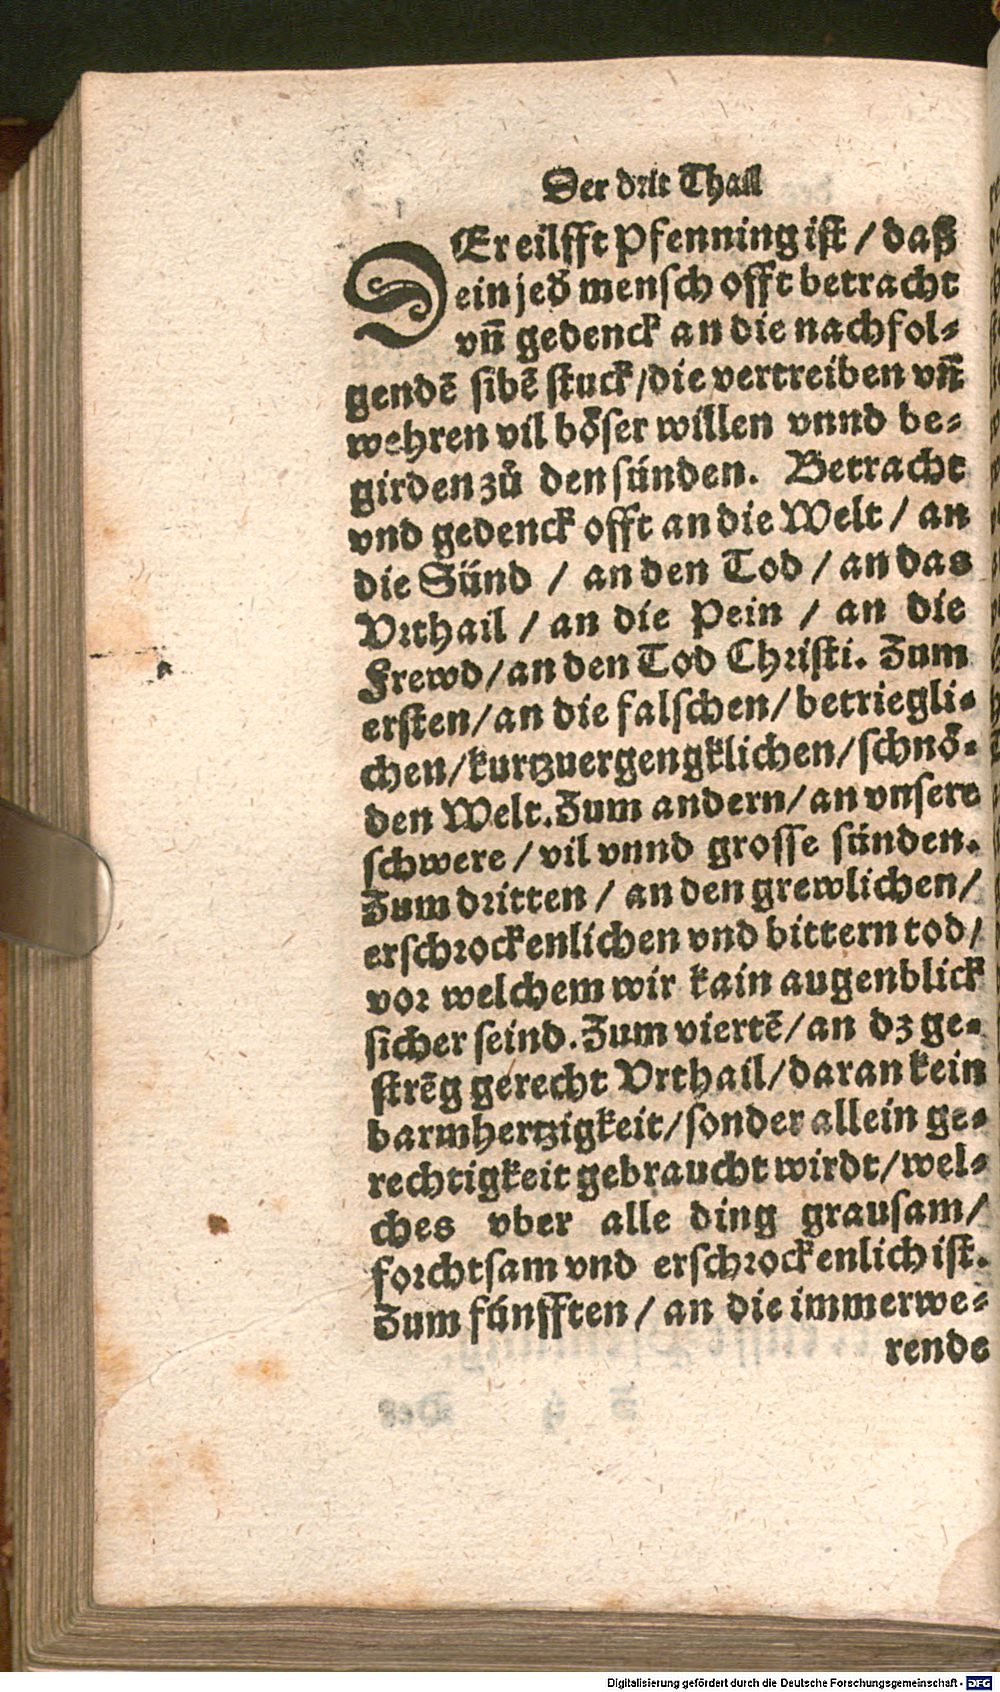 Der drit Thail
DEr eilfft Pfenning ist / daß
ein jed̄ mensch offt betracht
vn̄ gedenck an die nachfol-
gendē sibē stuck / die vertreiben vn̄
wehren vil böser willen vnnd be-
girden zů den sünden. Betracht
vnd gedenck offt an die Welt / an
die Sünd / an den Tod / an das
Vrthail / an die Pein / an die
Frewd / an den Tod Christi. Zum
ersten / an die falschen / betriegli-
chen / kurtzuergengklichen / schnö-
den Welt. Zum andern / an vnsere
schwere / vil vnnd grosse sünden.
Zum dritten / an den grewlichen /
erschrockenlichen vnd bittern tod /
vor welchem wir kain augenblick
sicher seind. Zum viertē / an dz ge-
strēg gerecht Vrthail / daran kein
barmhertzigkeit / sonder allein ge-
rechtigkeit gebraucht wirdt / wel-
ches vber alle ding grausam /
forchtsam vnd erschrockenlich ist.
Zum fünfften / an die immerwe-
rende
Digitalisierung gefördert durch die Deutsche Forschungsgemeinschaft - DFG